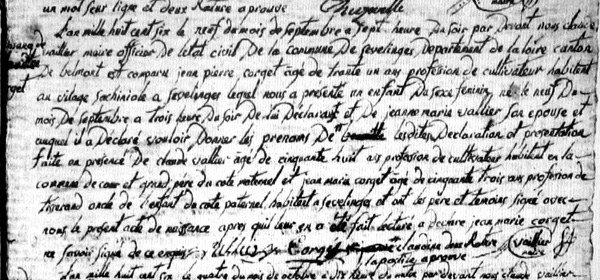 un mot sur ligne et deux Rature aprouvé
maire
L'an mille huit cent six le neuf du mois de septembre a sept heure du soir par devant nous claude
vaillier maire officier de letat civil De la commune De sevelinges departement de la loire canton
De belmont est comparu jean pierre corget age de trante un ans profesion de cultivateur habitent
au vilage a sevelinges lequel nous a presenté un enfant Du sexe feminin né le neuf Du
mois De septembre a trois heure Du soir De lui Declarant et De jeanne maria vaillier son epouse et
auquel il a Declaré vouloir Donner les prenoms De lesdites Declaration et presentation
faite en presence De claude vallier age de cinquante huit ans profesion de cultivateur habitent en la
commune de et grand pere du coté maternel et jean marie corget age de cinquante trois ans profesion de
tiserand oncle de l'enfant du cote paternel habitent a sevelinges et ont les pere et temoins signé avec
nous le present acte de naissance apres quil leurs en a eté fait lecture a declaré jean marie corget
ne savoir signé de ce enquis Corget Rature vaillier
lapostile aprouvé maire
L'an mille huit cent six le quatre du mois de octobre a heure du matin par devant nous claude vaillier